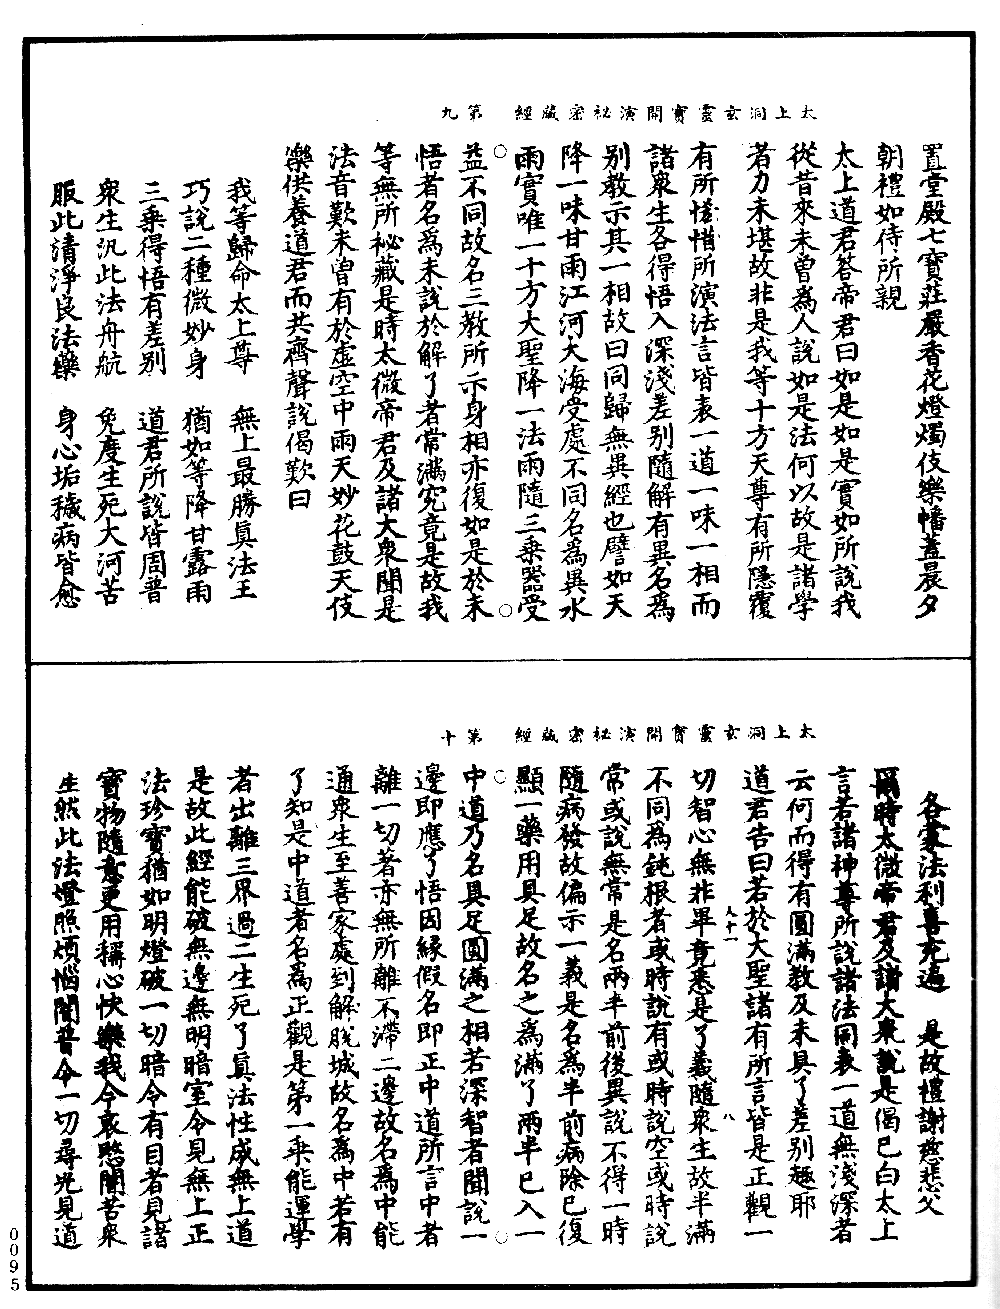 太上洞玄靈寶開演秘密藏經　第九
置堂殿七寶莊嚴香花燈燭伎樂幡蓋晨夕
朝禮如侍所親
太上道君答帝君曰如是如是實如所說我
從昔來未曾爲人說如是法何以故是諸學
者力未堪故非是我等十方天尊有所隱覆
有所悋惜所演法言皆表一道一味一相而
諸衆生各得悟入深淺差別隨解有異名爲
別教示其一相故曰同歸無異經也譬如天
降一味甘雨江河大海受處不同名爲異水
雨實唯一十方大聖降一法雨隨三乘器受
益不同故名三教所示身相亦復如是於未
悟者名爲未說於解了者常滿究竟是故我
等無所秘藏是時太微帝君及諸大衆聞是
法音歎未曾有於虛空中雨天妙花鼓天伎
樂供養道君而共齊聲說偈歎曰
我等歸命太上尊　無上最勝眞法王
巧說二種微妙身　猶如等降甘露雨
三乘得悟有差別　道君所說皆周普
衆生汎此法舟航　免度生死大河苦
服此清淨良法藥　身心垢穢病皆愈
太上洞玄靈寶開演秘密藏經　第十
各蒙法利喜充遍　是故禮謝慈悲父
爾時太微帝君及諸大衆說是偈已白太上
言若諸神尊所說諸法同表一道無淺深者
云何而得有圓滿教及未具了差別趣耶
道君告曰若於大聖諸有所言皆是正觀一
切智心無非畢竟悉是了義隨衆生故半滿
不同為鈍根者或時說有或時說空或時說
常或說無常是名兩半前後異說不得一時
隨病發故偏示一義是名爲半前病除已復
顯一藥用具足故名之爲滿了兩半已入一
中道乃名具足圓滿之相若深智者聞說一
邊即應了悟因緣假名即正中道所言中者
離一切著亦無所離不滯二邊故名爲中能
通衆生至善家處到解脫城故名爲中若有
了知是中道者名爲正觀是第一乘能運學
者出離三界過二生死了眞法性成無上道
是故此經能破無邊無明暗室令見無上正
法珍寶猶如明燈破一切暗令有目者見諸
寶物隨意更用稱心快樂我今哀愍闇苦衆
生然此法燈照煩惱闇普令一切尋光見道
九十一
八
0095